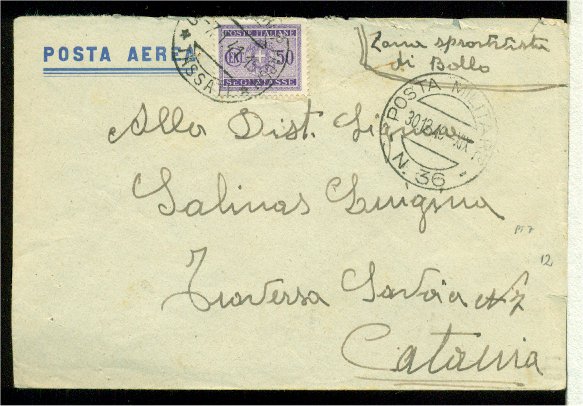 POSTA AEREA
POSTE ITALIANE
50
SEGNATASSE
TASSATE
Zona sprovvista
di Bollo
POSTA MILITARE
30.12.40.XIX
N. 36
Alla Dist. Signora
Salinas Luigina
Traversa Savoia N 7
Catania
12